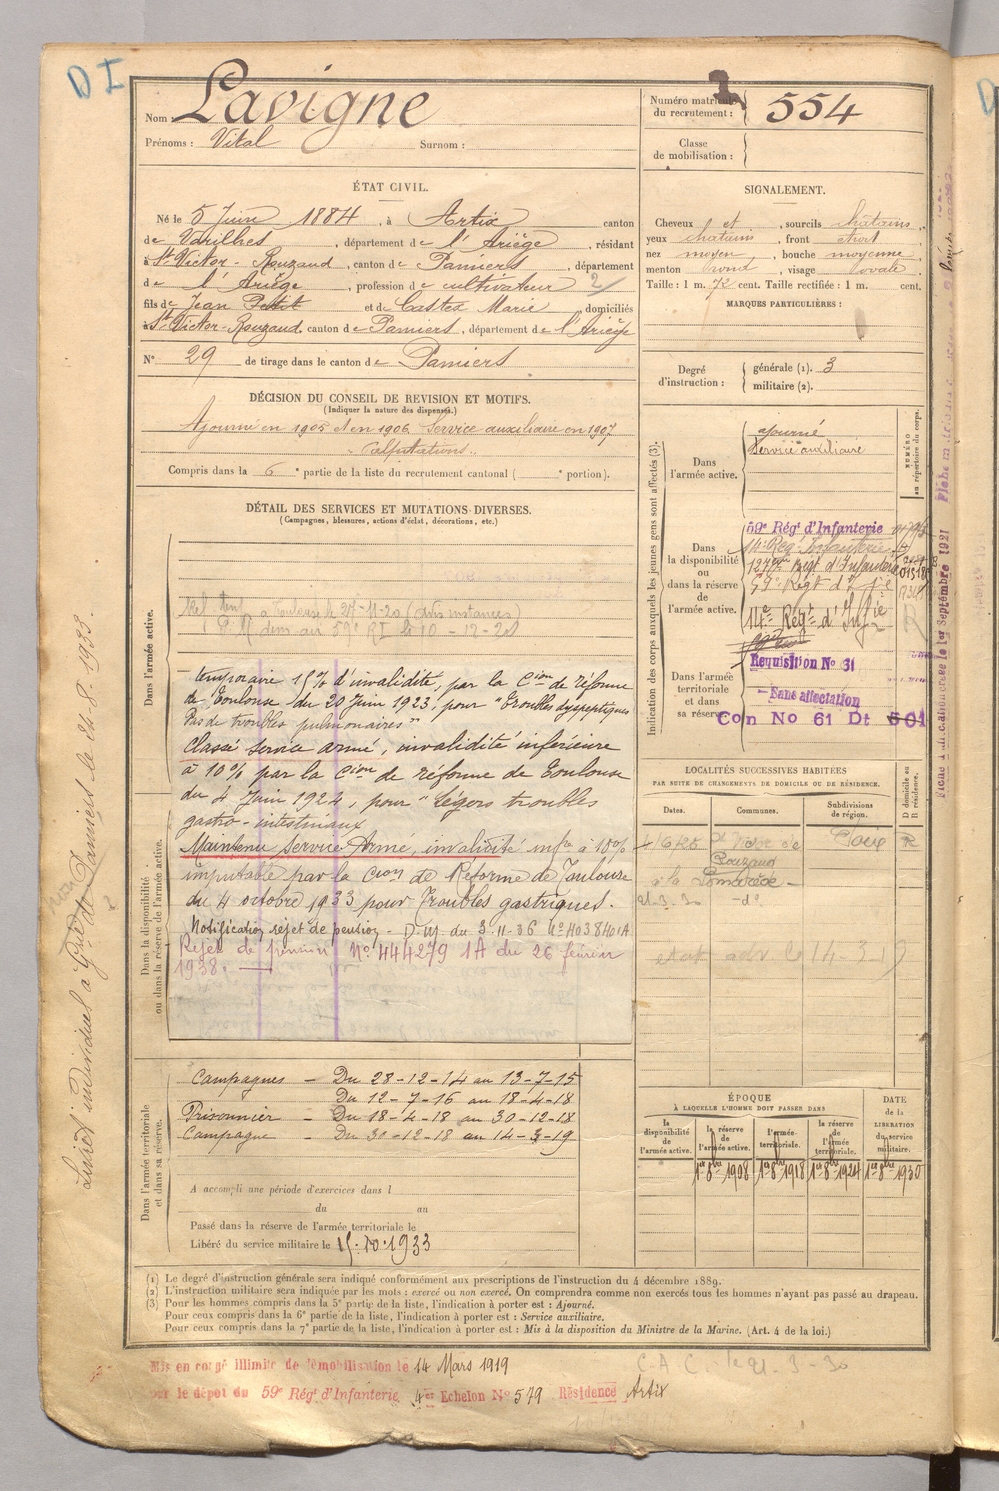 D I
Nom : Lavigne
Prénoms : Vital Surnom :
Numéro matricule du recrutement : 554
Classe de mobilisation :
ÉTAT CIVIL.
Né le 5 Juin 1884, à Artix canton
de Varilhes, département de l'Ariège, résidant
à St Victor-Rouzaud, canton de Pamiers, département
de l'Ariège, profession de cultivateur 2/
fils de Jean Petit et de Castex Marie, domiciliés
à St Victor-Rouzaud canton de Pamiers, département de l'Ariège
N° 29 de tirage dans le canton de Pamiers
SIGNALEMENT.
Cheveux et, sourcils chatains,
yeux chatains, front étroit
nez moyen, bouche moyenne
menton rond, visage ovale
Taille : 1 m. 72 cent. Taille rectifiée : 1 m. cent.
MARQUES PARTICULIÈRES :
Degré d'instruction : générale (1). 3
militaire (2).
DÉCISION DU CONSEIL DE REVISION ET MOTIFS.
(Indiquer la nature des dispenses.)
Ajourné en 1905 et en 1906. Service auxiliaire en 1907
"Palpitations"
Compris dans la 6e partie de la liste du recrutement cantonal ( e portion).
DÉTAIL DES SERVICES ET MUTATIONS DIVERSES.
(Campagnes, blessures, actions d'éclat, décorations, etc.)
Dans l'armée active.
temporaire 15% d'invalidité, par la Cion de réforme
de Toulouse du 20 Juin 1923, pour "Troubles dyspeptiques
Pas de troubles pulmonaires"
Classé service armé, invalidité inférieure
à 10% par la Cion de réforme de Toulouse
du 4 Juin 1924, pour "Légers troubles
gastro-intestinaux
Maintenu Service Armé, invalidité infre à 10%
imputable par la Cion de Réforme de Toulouse
du 4 octobre 1933 pour Troubles gastriques.
Notification rejet de pension - D.M. du 3.11.36 N° 403840 1A
Rejet de pension N° 444279 1A du 26 février
1938.
Dans la disponibilité
ou dans la réserve de l'armée active.
Indication des corps auxquels les jeunes gens sont affectés (3).
NUMÉRO
au répertoire du corps.
Dans l'armée active.
ajourné
Service auxiliaire
Dans la disponibilité ou dans la réserve de l'armée active.
59e Régt d'Infanterie
14e Rég. Infanterie
127e Régt d'Infanterie
59e Régt d'Ie
14e Régt d'Infie
Dans l'armée territoriale et dans sa réserve
Requisition No 31
Sans affectation
Con No 61 Dt 501
LOCALITÉS SUCCESSIVES HABITÉES
PAR SUITE DE CHANGEMENTS DE DOMICILE OU DE RÉSIDENCE.
Dates. Communes. Subdivisions de région. D domicile ou R résidence.
21-3-30 -do-
Dans l'armée territoriale
et dans sa réserve.
Campagnes - Du 28-12-14 au 13-7-15
Du 12-7-16 au 18-4-18
Prisonnier - Du 18-4-18 au 30-12-18
Campagne - Du 30-12-18 au 14-3-19
A accompli une période d'exercices dans l
du au
Passé dans la réserve de l'armée territoriale le
Libéré du service militaire le 15.10.1933
ÉPOQUE
À LAQUELLE L'HOMME DOIT PASSER DANS
la disponibilité de l'armée active. la réserve de l'armée active. l'armée territoriale. la réserve de l'armée territoriale. DATE de la LIBÉRATION du service militaire.
1er 8bre 1908 1er 8bre 1918 1er 8bre 1924 1er 8bre 1930
(1) Le degré d'instruction générale sera indiqué conformément aux prescriptions de l'instruction du 4 décembre 1889.
(2) L'instruction militaire sera indiquée par les mots : exercé ou non exercé. On comprendra comme non exercés tous les hommes n'ayant pas passé au drapeau.
(3) Pour les hommes compris dans la 5e partie de la liste, l'indication à porter est : Ajourné.
Pour ceux compris dans la 6e partie de la liste, l'indication à porter est : Service auxiliaire.
Pour ceux compris dans la 7e partie de la liste, l'indication à porter est : Mis à la disposition du Ministre de la Marine. (Art. 4 de la loi.)
Mis en congé illimité de démobilisation le 14 Mars 1919
par le dépôt du 59e Régt d'Infanterie 4er Echelon N° 579 Résidence Artix
C.A.C. le 21-3-30